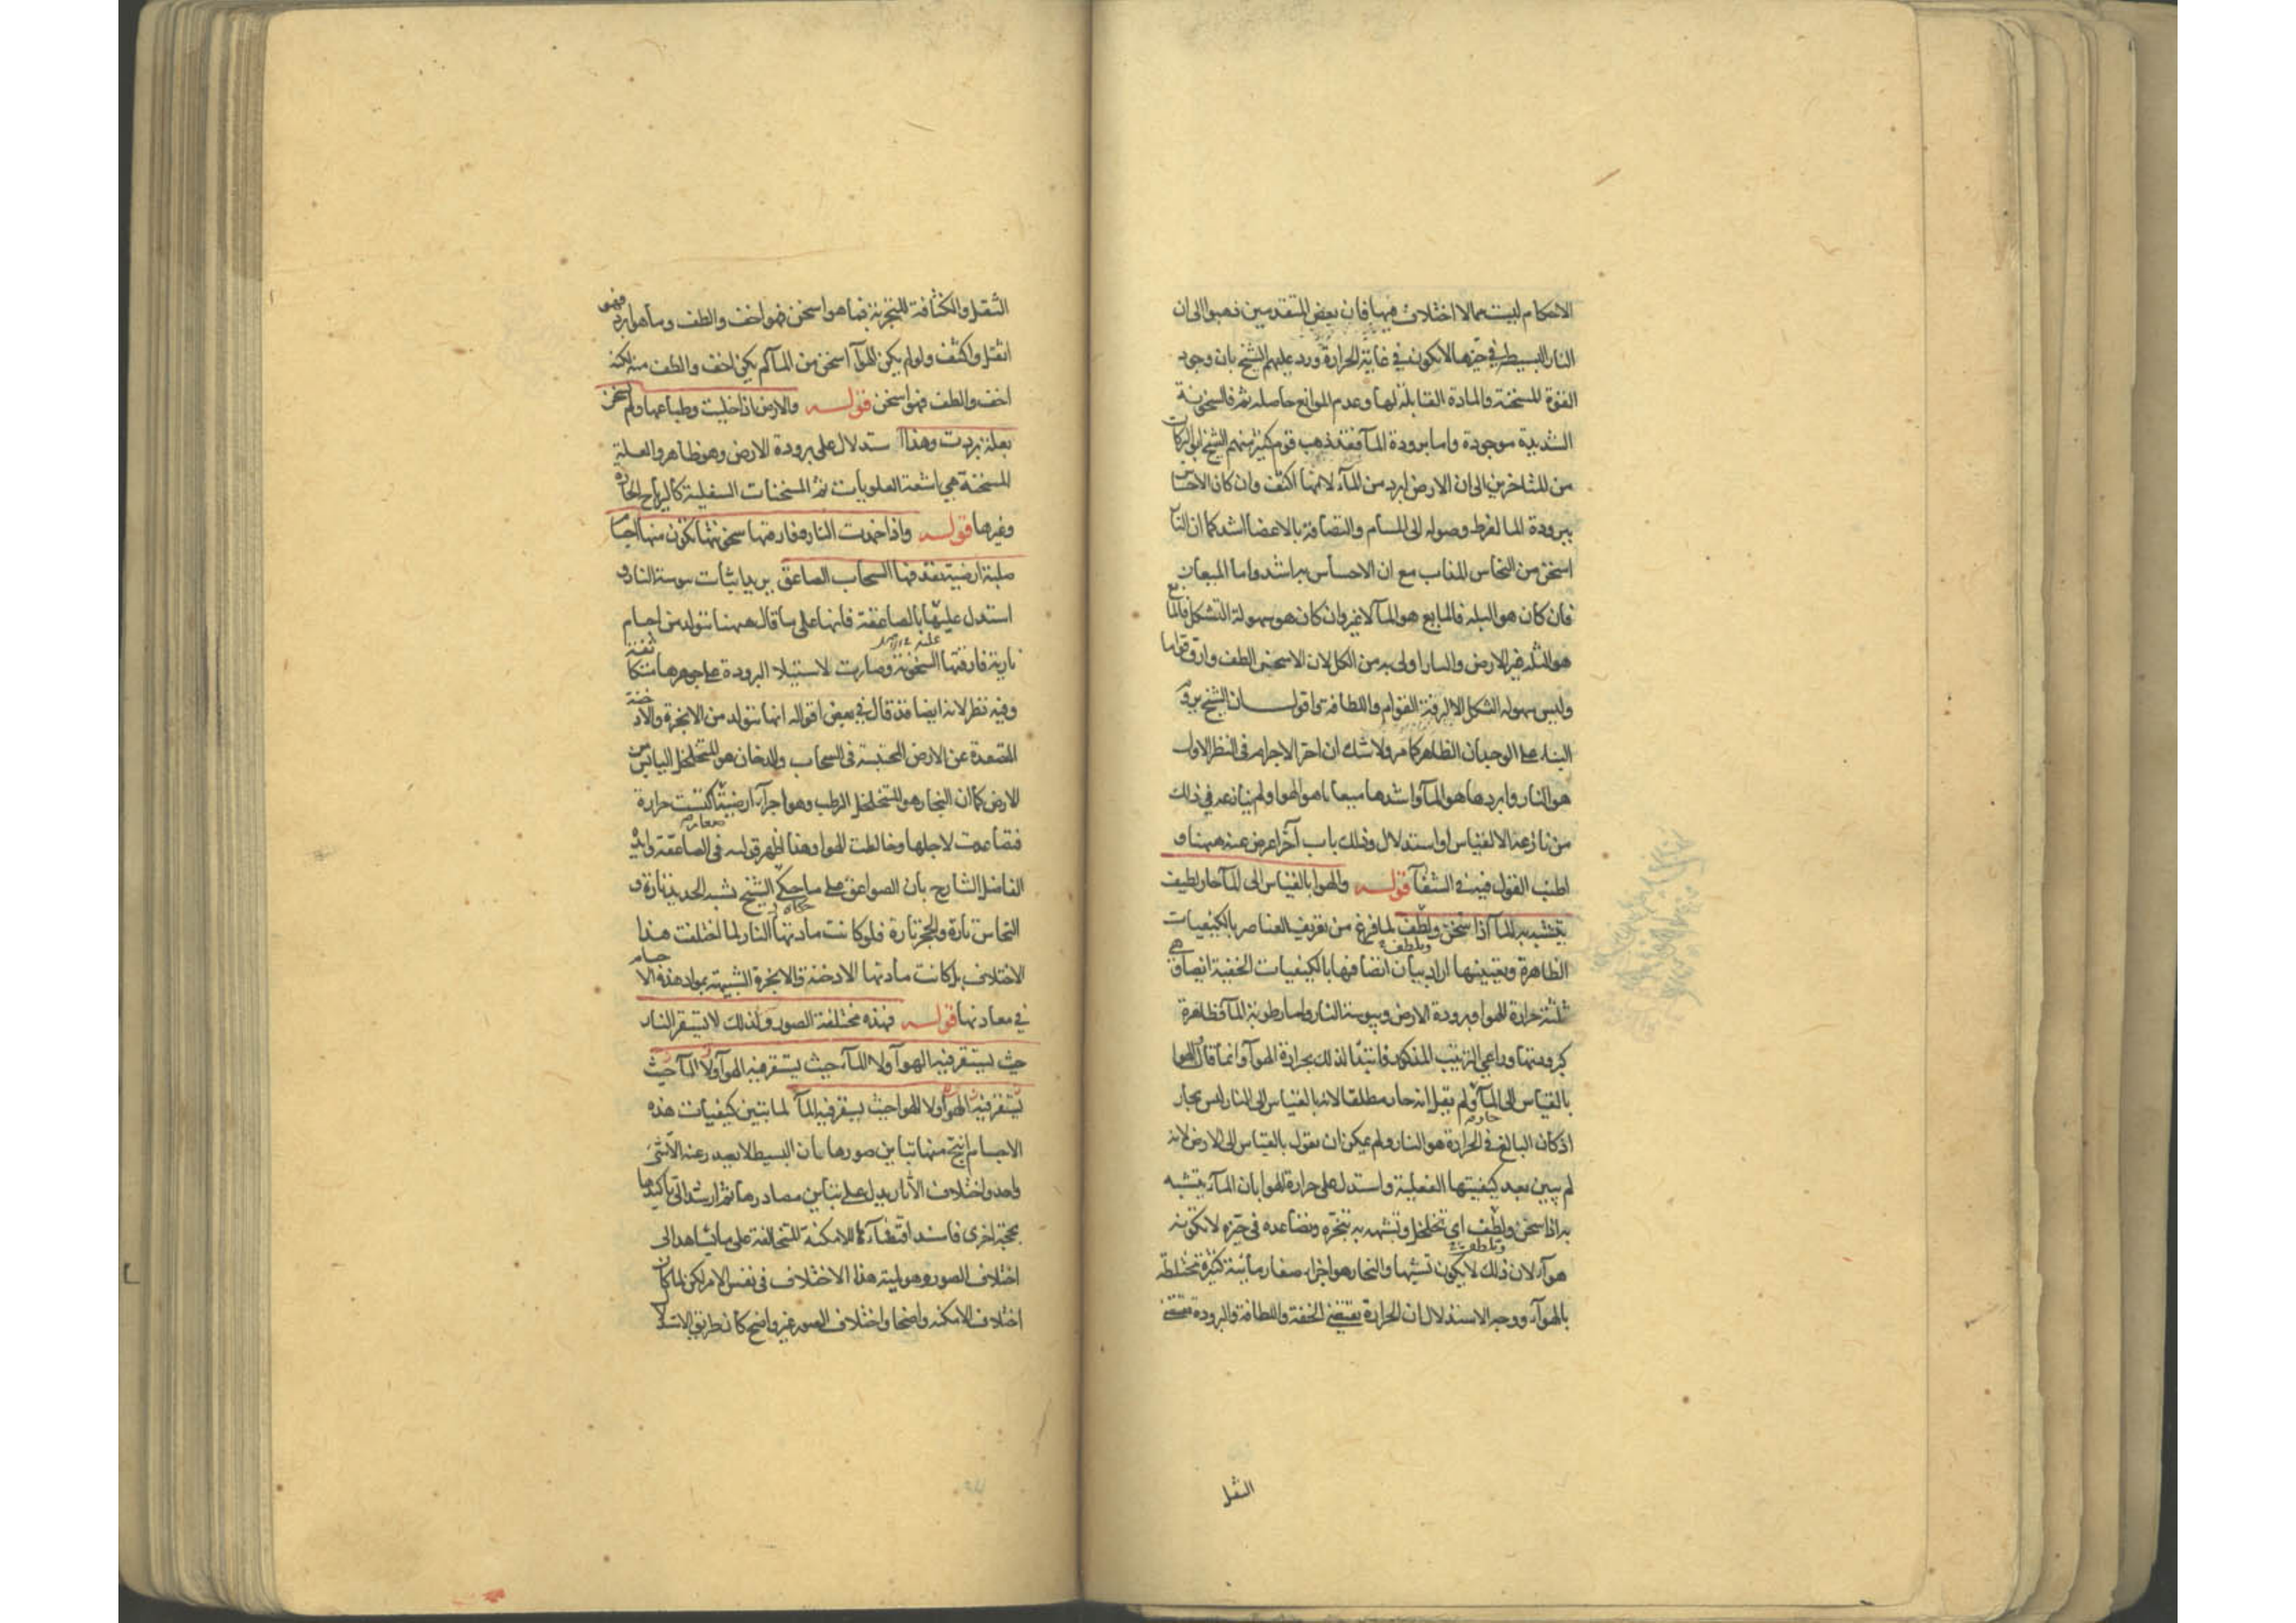 الاحكام ليست مما لا اختلاف فيها فان بعض المتقدمين ذهبوا الى ان
النار البسيطة في حيزها لا يكون في غاية الحرارة ورد عليهم الشيخ بان وجود
القوة المسخنة والمادة القابلة لها وعدم الموانع حاصله ثم فالسخونة
الشديدة موجودة واما برودة الماء فقد ذهب قوم كثير منهم الشيخ ابو البركات
من المتاخرين الى ان الارض ابرد من الماء لانها اكثف وان كان الاحساس
ببرودة الما لفرط وصوله الى المسام والتصاقه بالاعضا اشد كما ان النار
اسخن من النحاس المذاب مع ان الاحساس به اشد واما الميعان
فان كان هو البلة فالمايع هو الماء لا غير وان كان هو سهولة التشكل فالمايع
هو الثلثة غير الارض والنار اولى به من الكل لان الاسخن الطف وارق قواما
وليس سهولة التشكل الا لرقة القوام واللطافة واقول ان الشيخ يروم
البناء على الوجدان الظاهر كما مر ولا شك ان احر الاجرام في النظر الاول
هو النار وابردها هو الماء واشدها ميعانا هو الهوا ولم ينازعه في ذلك
من نازعه الا لقياس او استدلال وذلك باب آخر اعرض عنه ههنا و
اطنب القول فيه في الشفاء قوله والهوا بالقياس الى الماء حار لطيف
يتشبه به الماء اذا سخن ولطف لما فرغ من تعريف العناصر بالكيفيات
وتلطف
الظاهرة وتعيينها اراد بيان اتصافها بالكيفيات الخفية اتصافا هي
ثلثة حرارة الهوا وبرودة الارض ويبوسة النار واما رطوبة الماء فظاهرة
كبرودتها وراعى الترتيب المذكور فابتدا لذلك بحرارة الهوآء وانما قال الهوا
بالقياس الى الماء ولم يقل انه حار مطلقا لانه بالقياس الى النار ليس بحار
اذ كان البالغ في الحرارة هو النار ولم يمكن ان يقول بالقياس الى الارض لانه
لم يبين بعد كيفيتها الفعلية واستدل على حرارة الهوا بان الماء يتشبه
به اذا سخن ولطف اى تخلخل وتشبهه به تبخره وتصاعده في حيزه لا تكونه
وتلطف
هوآء لان ذلك لا يكون تشبها والبخار هو اجزاء صغار مائية كثيرة تختلط
بالهوآء ووجه الاستدلال ان الحرارة يقتضي الخفة واللطافة والبرودة تقتضي
الثقل
الثقل والكثافة للتجربة فما هو اسخن فهو اخف والطف وما هو ابرد فهو
اثقل واكثف ولو لم يكن الهوآء اسخن من الماء لم يكن اخف والطف منه لكنه
اخف والطف فهو اسخن قوله والارض اذا خليت وطباعها ولم تسخن
بعلة بردت وهذا استدلال على برودة الارض وهو ظاهر والعلة
المسخنة هي اشعة العلويات ثم المسخنات السفلية كالرياح الحارة
وغيرها قوله واذا خمدت النار وفارقتها سخونتها تكون منها اجسام
صلبة ارضية يقذفها السحاب الصاعق يريد اثبات يبوسة النار و
استدل عليها بالصاعقة فانها على ما قال ههنا تتولد من اجسام
نارية فارقتها السخونة وصارت لاستيلا البرودة على جوهرها متكاثفة
وفيه نظر لانه ايضا قد قال في بعض اقواله انها تتولد من الابخرة والادخنة
المتصعدة عن الارض المحتبسة في السحاب والدخان هو المتخلخل اليابس من
الارض كما ان البخار هو المتخلخل الرطب وهو اجزآء ارضية اكتسبت حرارة
فتصاعدت لاجلها وخالطت الهوا وهذا اظهر قوليه في الصاعقة وايده
الفاضل الشارح بان الصواعق على ما حكى الشيخ تشبه الحديد تارة و
حكاه
النحاس تارة والحجر تارة فلو كانت مادتها النار لما اختلفت هذا
الاختلاف بل كانت مادتها الادخنة والابخرة الشبيهة بمواد هذه الاجسام
في معادنها قوله فهذه مختلفة الصور ولذلك لا يستقر النار
حيث يستقر فيه الهوآء ولا الماء حيث يستقر فيه الهوآء ولا الماء حيث
يستقر فيه الهوآء ولا الهوا حيث يستقر فيه الماء لما بتين كيفيات هذه
الاجسام انتج منها تباين صورها بان البسيط لا يصدر عنه الا شئ
واحد واختلاف الآثار يدل على تباين مصادرها ثم اراد تاكيدها
بحجة اخرى فاسند اقتضآءها الامكنة المتخالفة على ما يشاهد الى
اختلاف الصور وهو ليته هذا الاختلاف في نفس الامر لكن لما كان
اختلاف الامكنه واضحا واختلاف الصور غير واضح كان طريق الاستدلا